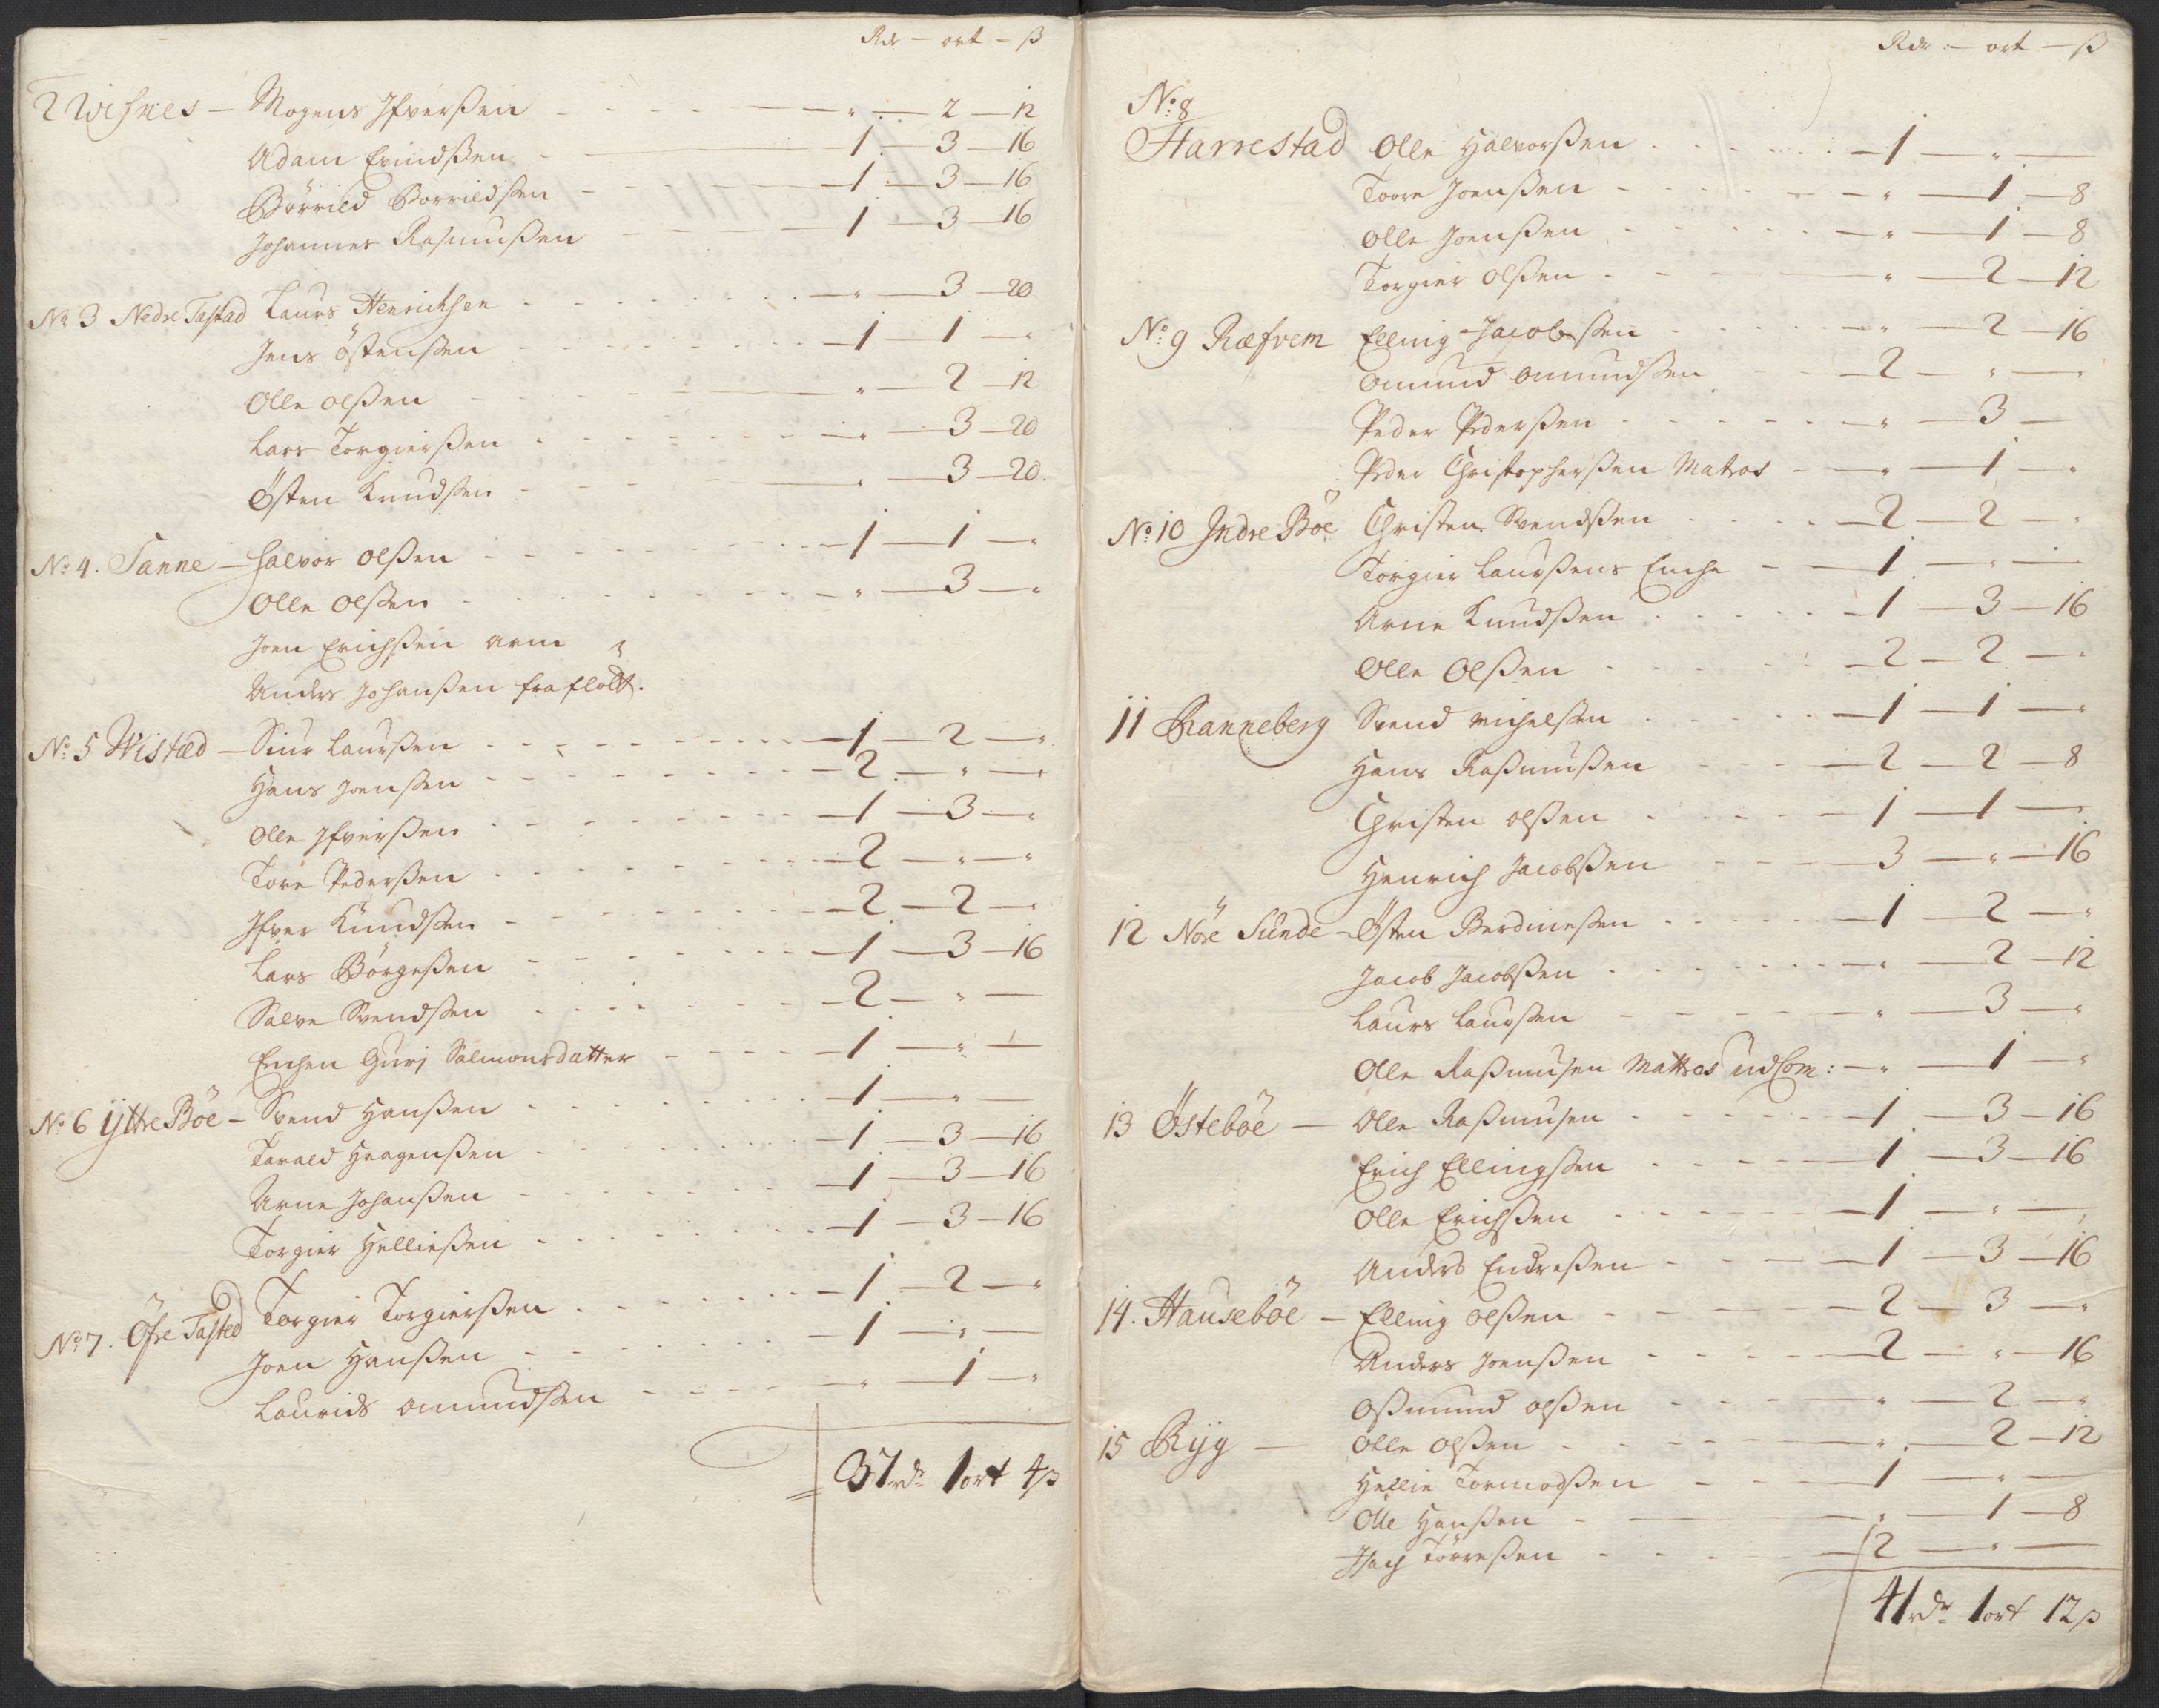 Rdr — ort — ß
2 Wisnes — Mogens Ifverßen — " — 2 — 12
Adam Evindßen — 1 — 3 — 16
Börrild Borrildsen — 1 — 3 — 16
Johannes Rasmußen — 1 — 3 — 16
No 3 Nedre Tastad Laurs Henrichsen — " — 3 — 20
Jens Östensen — 1 — 1 — "
Olle olßen — " — 2 — 12
Lars Torgierßen — " — 3 — 20
Östen Knudsen — " — 3 — 20.
No 4. Tanne — Halvor olßen — 1 — 1 — "
Olle olßen — " — 3 — "
Joen Erichßen arm
Anders Johanßen fraflött.
No 5 Wistad — Siur Laurßen — 1 — 2 — "
Hans Joenßen — 2 — " — "
Olle Ifverßen — 1 — 3 — "
Tore Pederßen — 2 — " — "
Ifver Knudsen — 2 — 2 — "
Lars Börgeßen — 1 — 3 — 16
Salve Svendßen — 2 — " —
Enchen Gurj Salmonsdatter — 1 — " —
No 6 Ÿttre Böe — Svend Hanßen — 1 — " —
Tarald Haagenßen — 1 — 3 — 16
Arne Johanßen — 1 — 3 — 16
Torgier Helließen — 1 — 3 — 16
No 7. Öfre Tasted Torgier Torgierßen — 1 — 2 — "
Joen Hanßen — 1 — " —
Laurids omundsen — " — 1 — "
37 rdr 1 ort 4 ß
Rdr — ort — ß
No 8
Harrestad Olle Halvorßen — 1 — " —
Toore Joenßen — " — 1 — 8
Olle Joenßen — " — 1 — 8
Torgier olßen — " — 2 — 12
No 9 Ræfvem Elling Jacobsen — " — 2 — 16
Omund omundßen — 2 — " — "
Peder Pederßen — " — 3 —
Peder Christopherßen Matros — " — 1 — "
No 10 Jndre Böe Christen Svendßen — 2 — 2 — "
Torgier Laurßens Enche — 1 — " —
Arne Knudßen — 1 — 3 — 16
Olle Olßen — 2 — 2 — "
11 Ranneberg Svend Michelßen — 1 — 1 — "
Hans Raßmußen — 2 — 2 — 8
Christen olßen — 1 — 1 —
Henrich Jacobßen — 3 — " — 16
12 Nöre Sunde — Östen Berdineßen — 1 — 2 — "
Jacob Jacobßen — " — 2 — 12
Laurs Laurßen — " — 3 — "
Olle Raßmusen Mattros udCom: — " — 1 — "
13 Östeböe — Olle Raßmusen — 1 — 3 — 16
Erich Ellingsen — 1 — 3 — 16
Olle Erichßen — 1 — " —
Anders Endreßen — 1 — 3 — 16
14. Hauseböe — Elling olßen — 2 — 3 — "
Anders Joenßen — 2 — " — 16
Oßmund olßen — " — 2 — "
15 Ryg — Olle olßen — " — 2 — 12
Hellie Tormodßen — 1 — " —
Olle Hanßen — " — 1 — 8
Isach Törreßen — 2 — " —
41 rdr 1 ort 12 ß